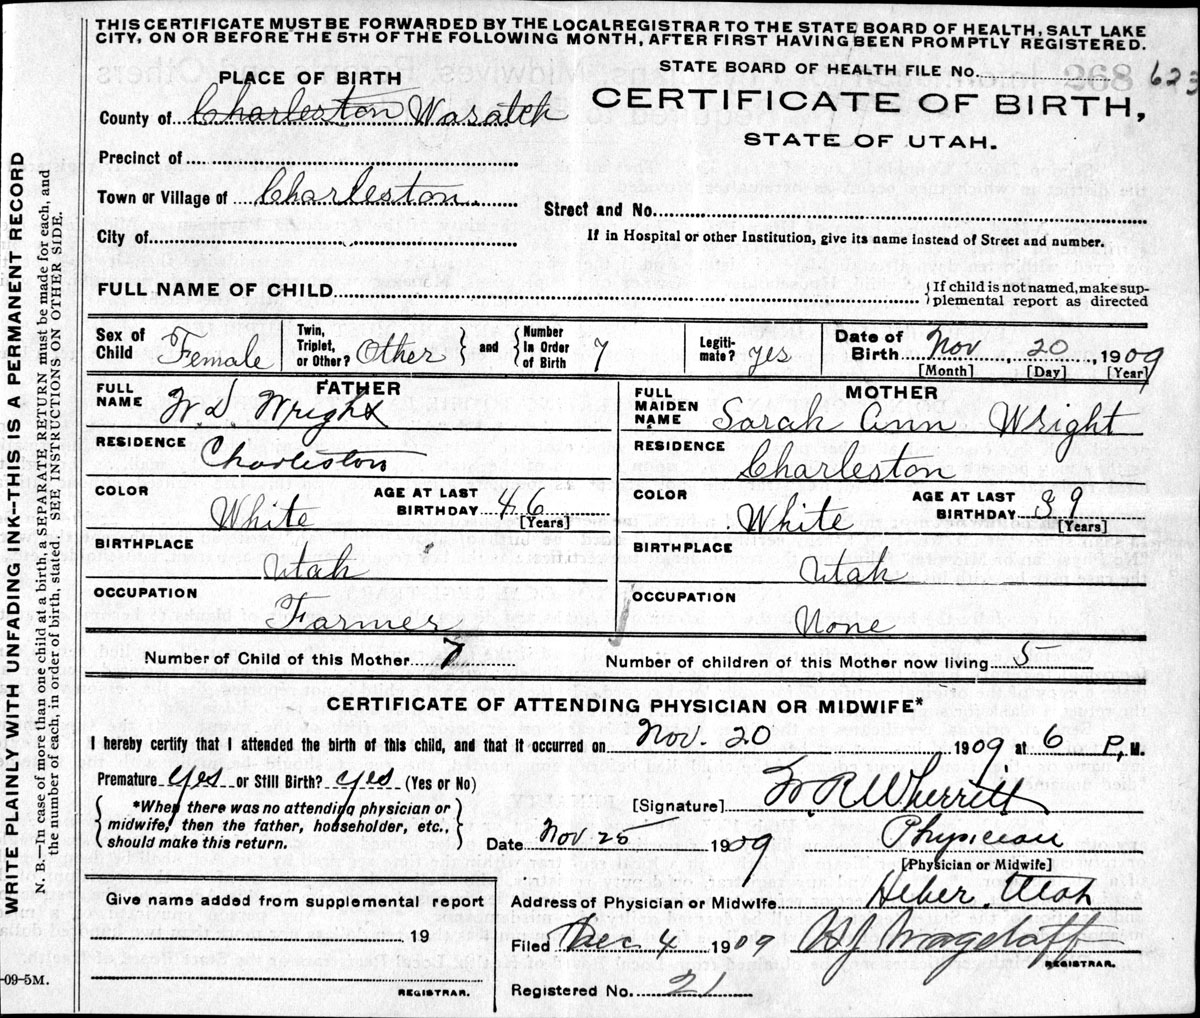 THIS CERTIFICATE MUST BE FORWARDED BY THE LOCAL REGISTRAR TO THE STATE BOARD OF HEALTH, SALT LAKE
CITY, ON OR BEFORE THE 5TH OF THE FOLLOWING MONTH, AFTER FIRST HAVING BEEN PROMPTLY REGISTERED.
STATE BOARD OF HEALTH FILE NO. 268 623
PLACE OF BIRTH
CERTIFICATE OF BIRTH,
STATE OF UTAH.
County of Charleston Wasatch
Precinct of
Town or Village of Charleston
Street and No.
City of
If in Hospital or other Institution, give its name instead of Street and number.
FULL NAME OF CHILD { If child is not named, make sup-
plemental report as directed
Sex of Child Female
Twin, Triplet, or Other? Other } and { Number In Order of Birth 7
Legiti-mate? yes
Date of Birth Nov 20 1909
[Month] [Day] [Year]
FATHER
FULL NAME W. D. Wright
RESIDENCE Charleston
COLOR White AGE AT LAST BIRTHDAY 46 [Years]
BIRTHPLACE Utah
OCCUPATION Farmer
MOTHER
FULL MAIDEN NAME Sarah Ann Wright
RESIDENCE Charleston
COLOR White AGE AT LAST BIRTHDAY 39 [Years]
BIRTHPLACE Utah
OCCUPATION None
Number of Child of this Mother 7
Number of children of this Mother now living 5
CERTIFICATE OF ATTENDING PHYSICIAN OR MIDWIFE*
I hereby certify that I attended the birth of this child, and that it occurred on Nov. 20 1909 at 6 P. M.
Premature yes or Still Birth? yes (Yes or No)
{ *When there was no attending physician or
midwife, then the father, householder, etc.,
should make this return. }
[Signature] W R Wherritt
Date Nov. 25 1909 Physician
[Physician or Midwife]
Address of Physician or Midwife Heber. Utah
Filed Dec. 4 1909
REGISTRAR.
Registered No. 21
Give name added from supplemental report
19
REGISTRAR.
-09-5M.
WRITE PLAINLY WITH UNFADING INK--THIS IS A PERMANENT RECORD
N. B.—In case of more than one child at a birth, a SEPARATE RETURN must be made for each, and
the number of each, in order of birth, stated. SEE INSTRUCTIONS ON OTHER SIDE.